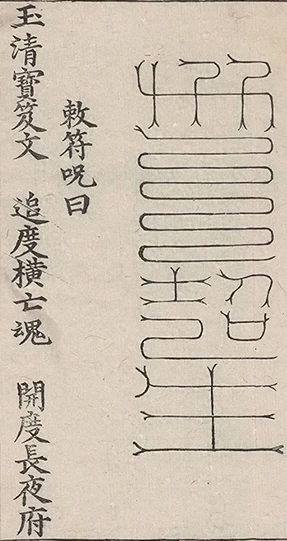 敕符呪曰
玉清寶笈文　追度橫亡魂　開度長夜府